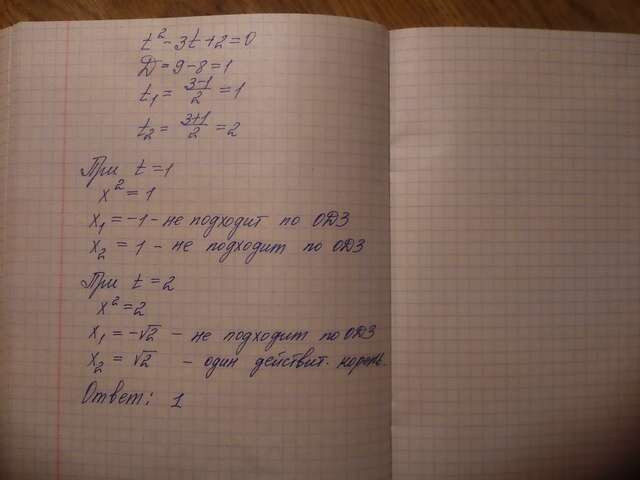 t² - 3t + 2 = 0
D = 9 - 8 = 1
t₁ = (3-1)/2 = 1
t₂ = (3+1)/2 = 2
При t = 1
x² = 1
x₁ = -1 - не подходит по ОДЗ
x₂ = 1 - не подходит по ОДЗ
При t = 2
x² = 2
x₁ = -√2 - не подходит по ОДЗ
x₂ = √2 - один действит. корень.
Ответ: 1